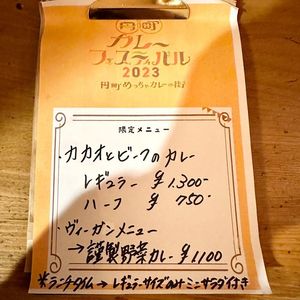 円町
カレー
フェスティバル
2023
円町めっちゃカレーの街
限定メニュー
・カカオとビーフのカレー
レギュラー ¥1.300-
ハーフ ¥750-
・ヴィーガンメニュー
→謹製野菜カレー ¥1100
※ランチタイム→レギュラーサイズのみミニサラダ付き